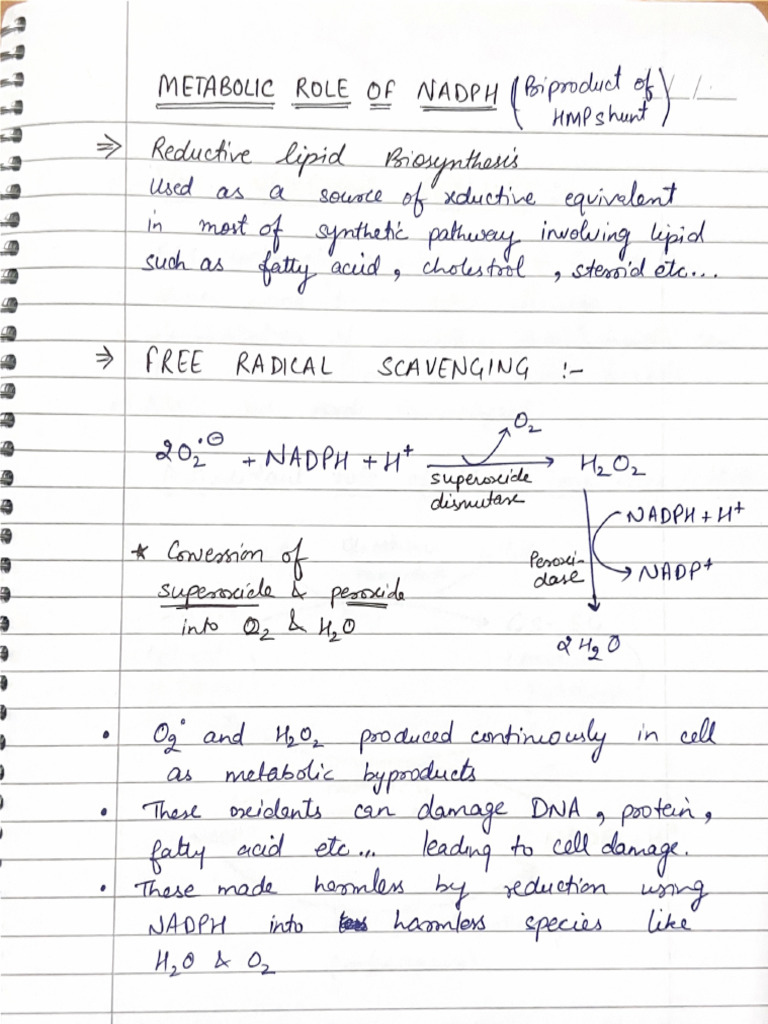 METABOLIC ROLE OF NADPH (Biproduct of
HMP shunt)
⇒ Reductive lipid Biosynthesis
Used as a source of reductive equivalent
in most of synthetic pathway involving lipid
such as fatty acid, cholestrol, steroid etc...
⇒ FREE RADICAL SCAVENGING :-
O2
2O2•⊖ + NADPH + H+ → H2O2
superoxide
dismutase
NADPH + H+
Peroxi-
dase
NADP+
2H2O
* Conession of
superoxide & peroxide
into O2 & H2O
• O2• and H2O2 produced continuously in cell
as metabolic byproducts
• These oxidents can damage DNA, protein,
fatty acid etc... leading to cell damage.
• These made harmless by reduction using
NADPH into harmless species like
H2O & O2